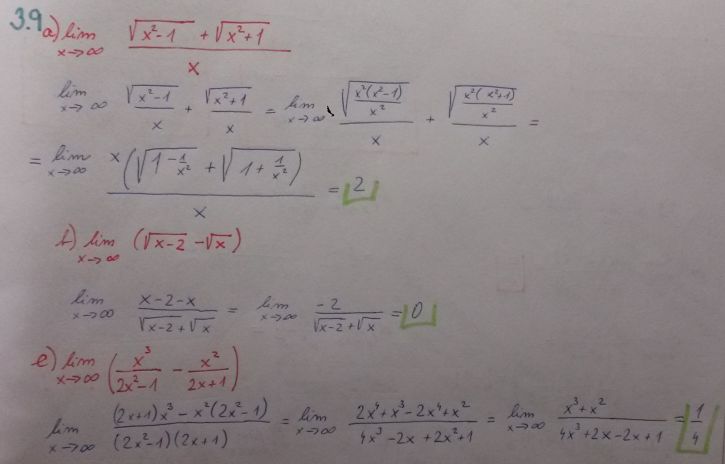 3.9
a) lim x→∞ (√(x²-1) + √(x²+1)) / x
lim x→∞ √(x²-1) / x + √(x²+1) / x = lim x→∞ √(x²(x²-1) / x²) / x + √(x²(x²+1) / x²) / x =
= lim x→∞ x(√(1-1/x²) + √(1+1/x²)) / x = 2
b) lim x→∞ (√(x-2) - √x)
lim x→∞ (x-2-x) / (√(x-2) + √x) = lim x→∞ -2 / (√(x-2) + √x) = 0
e) lim x→∞ (x³ / (2x²-1) - x² / (2x+1))
lim x→∞ ((2x+1)x³ - x²(2x²-1)) / ((2x²-1)(2x+1)) = lim x→∞ (2x⁴+x³-2x⁴+x²) / (4x³-2x+2x²+1) = lim x→∞ (x³+x²) / (4x³+2x-2x+1) = 1/4